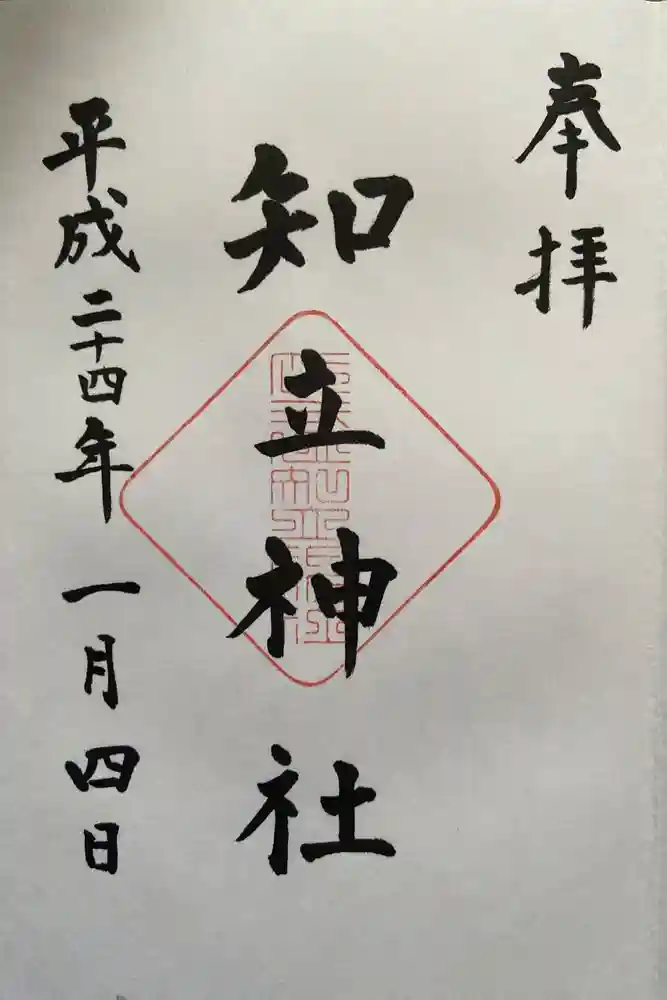 奉拝
知立神社
平成二十四年一月四日